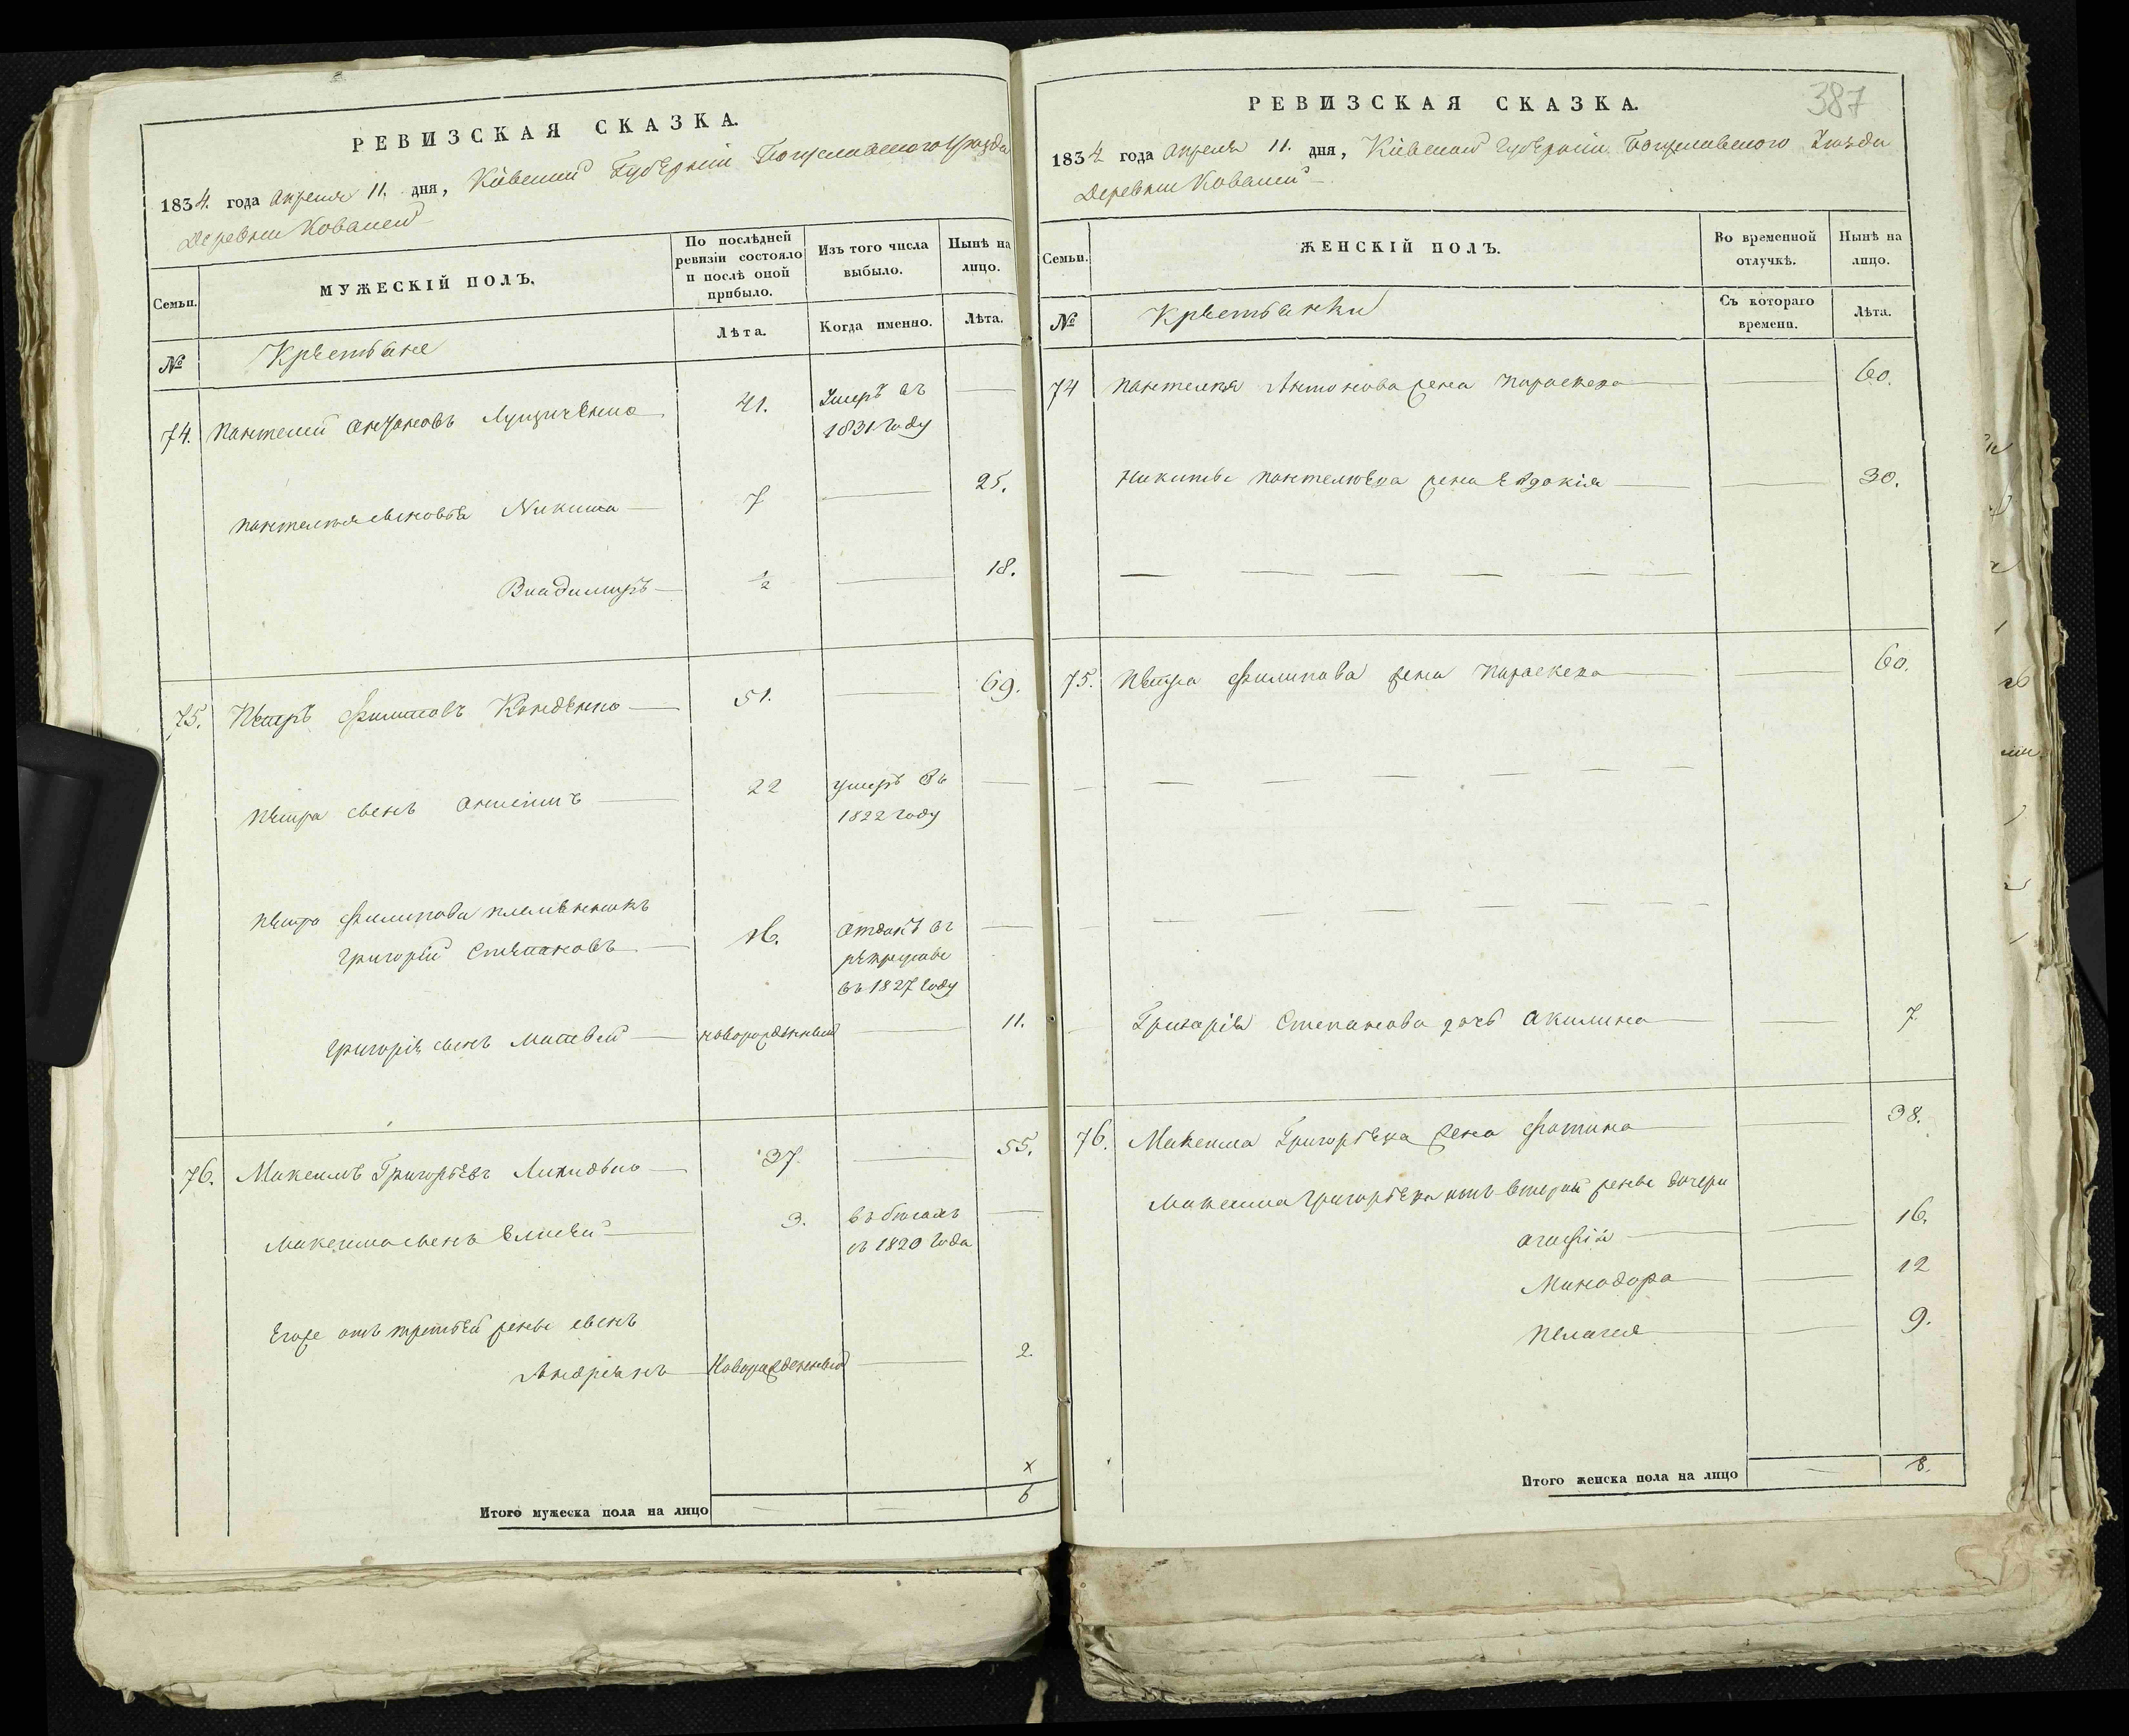 РЕВИЗСКАЯ СКАЗКА.
1834. года Апреля 11. дня, Кіевской Губерніи Богуславского Уезда
Деревни Ковалей
Семьи.
МУЖЕСКІЙ ПОЛЪ.
По послѣдней ревизіи состояло и послѣ оной прибыло.
Изъ того числа выбыло.
Нынѣ на лицо.
№
Крестьяне
Лѣта.
Когда именно.
Лѣта.
74. Пантелей Антоновъ 41. Умеръ въ
1831 году
Пантелея сыновья Никита 7 25.
Владимиръ ½ 18.
75. Петръ Филиповъ 51. 69.
Петра сынъ 22 умеръ въ
1822 году
Петра Филипова племенникъ
Григорій Степановъ 16. отданъ въ
рекруты
въ 1827 году
Григорія сынъ Матвей новорожденный 11.
76. Максимъ Григорьевъ 37. 55.
Максима сынъ Елисей 3. въ бегахъ
съ 1820 года
Егоже отъ третьей жены сынъ
Андріянъ Новорожденный 2.
х
Итого мужеска пола на лицо 6
РЕВИЗСКАЯ СКАЗКА.
387
1834 года Апреля 11. дня, Кіевской Губерніи Богуславского Уезда
Деревни Ковалей
Семьи.
ЖЕНСКІЙ ПОЛЪ.
Во временной отлучкѣ.
Нынѣ на лицо.
№
Крестьянки
Съ котораго времени.
Лѣта.
74 Пантелея Антонова жена Параскева 60.
Никиты Пантелеева жена Евдокія 30.
75. Петра Филипова жена Параскева 60.
Григорія Степанова дочь Акилина 7
76. Максима Григорьева жена Фотина 38.
Максима Григорьева отъ второй жены дочери
Агафія 16.
Минодора 12
Пелагея 9.
Итого женска пола на лицо 8.